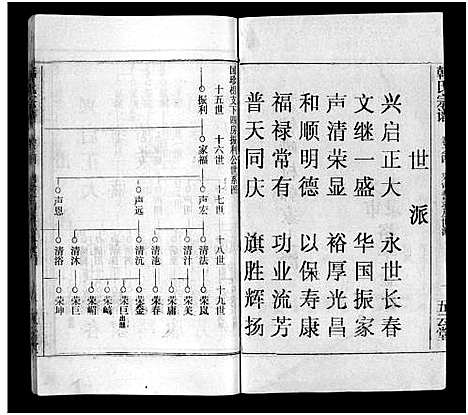 韩氏宗谱
世派
兴启正大 永世长春
文继一盛 华国振家
声清荣显 裕厚光昌
和顺明德 以保寿康
福禄常有 功业流芳
普天同庆 旗胜辉扬
五云堂
国珍祖支下四房振利公世系图
十五世 十六世 十七世 十八世 十九世
振利 家福 声宏 清法 荣岚
荣庸
清汁 荣美
声远 清池 荣春
清沆 荣鎣
荣巨出继
荣崎
声恩 清沐 荣嵋
荣巨
清浴 荣坤